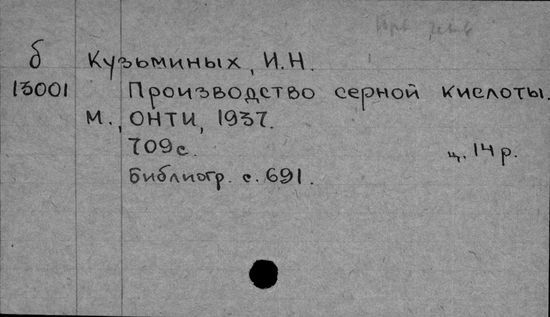 б Кузьминых, И.Н.
13001 Производство серной кислоты.
М., ОНТИ, 1937.
709с. ц. 14 р.
Библиогр. с. 691.